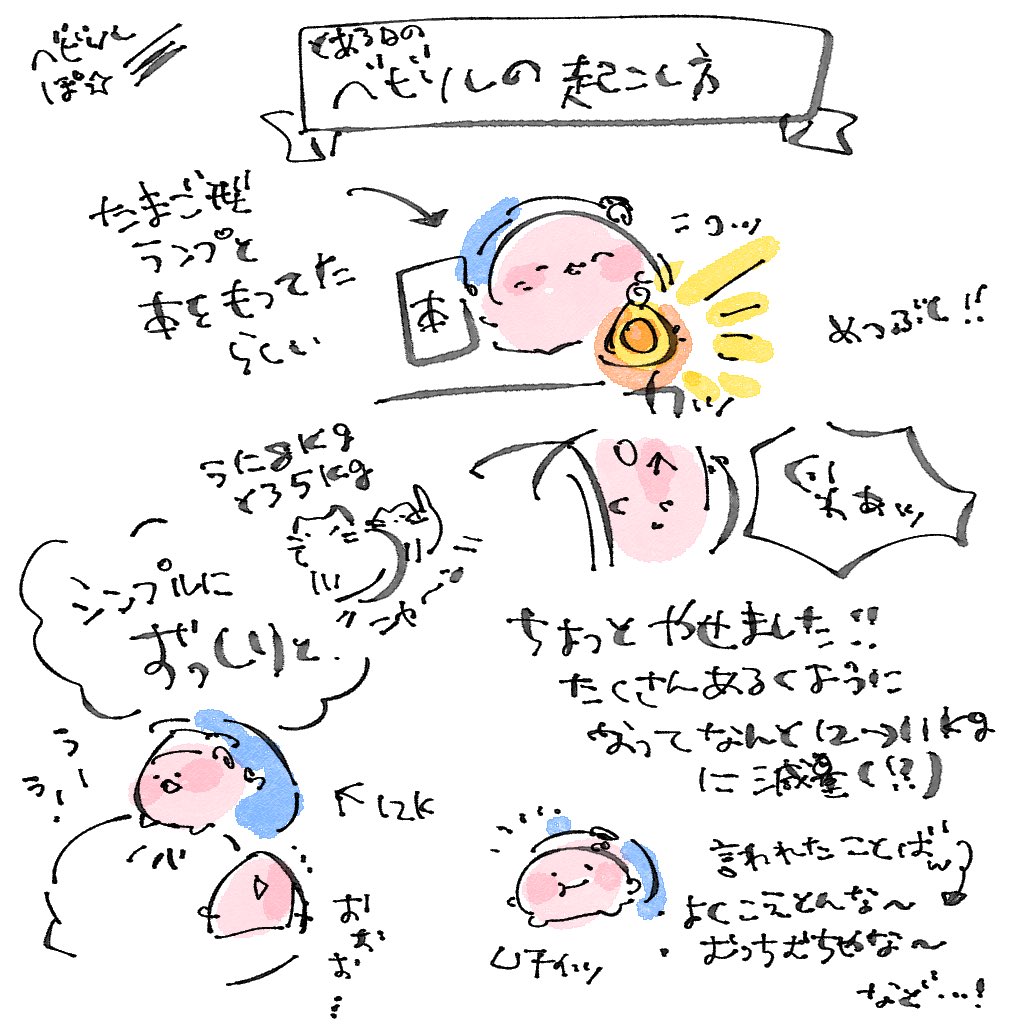 ベビルん
ぽ☆
とある日の
ベビルの起こし方
たまご型
ランプと
本をもってた
らしい
本
ニコッ
めつぶし!!
カッ
うに8kg
とろ5kg
ぐわあッ
シンプルに
ずっしりと.
ニャ〜
ちょっとやせました!!
たくさんあるくように
なってなんと12→11kg
に減量(!?)
う!
う!
←12k
お!
お!
お!
言われたことばん
よくこえとんな〜
むっちむちやな〜
など…!